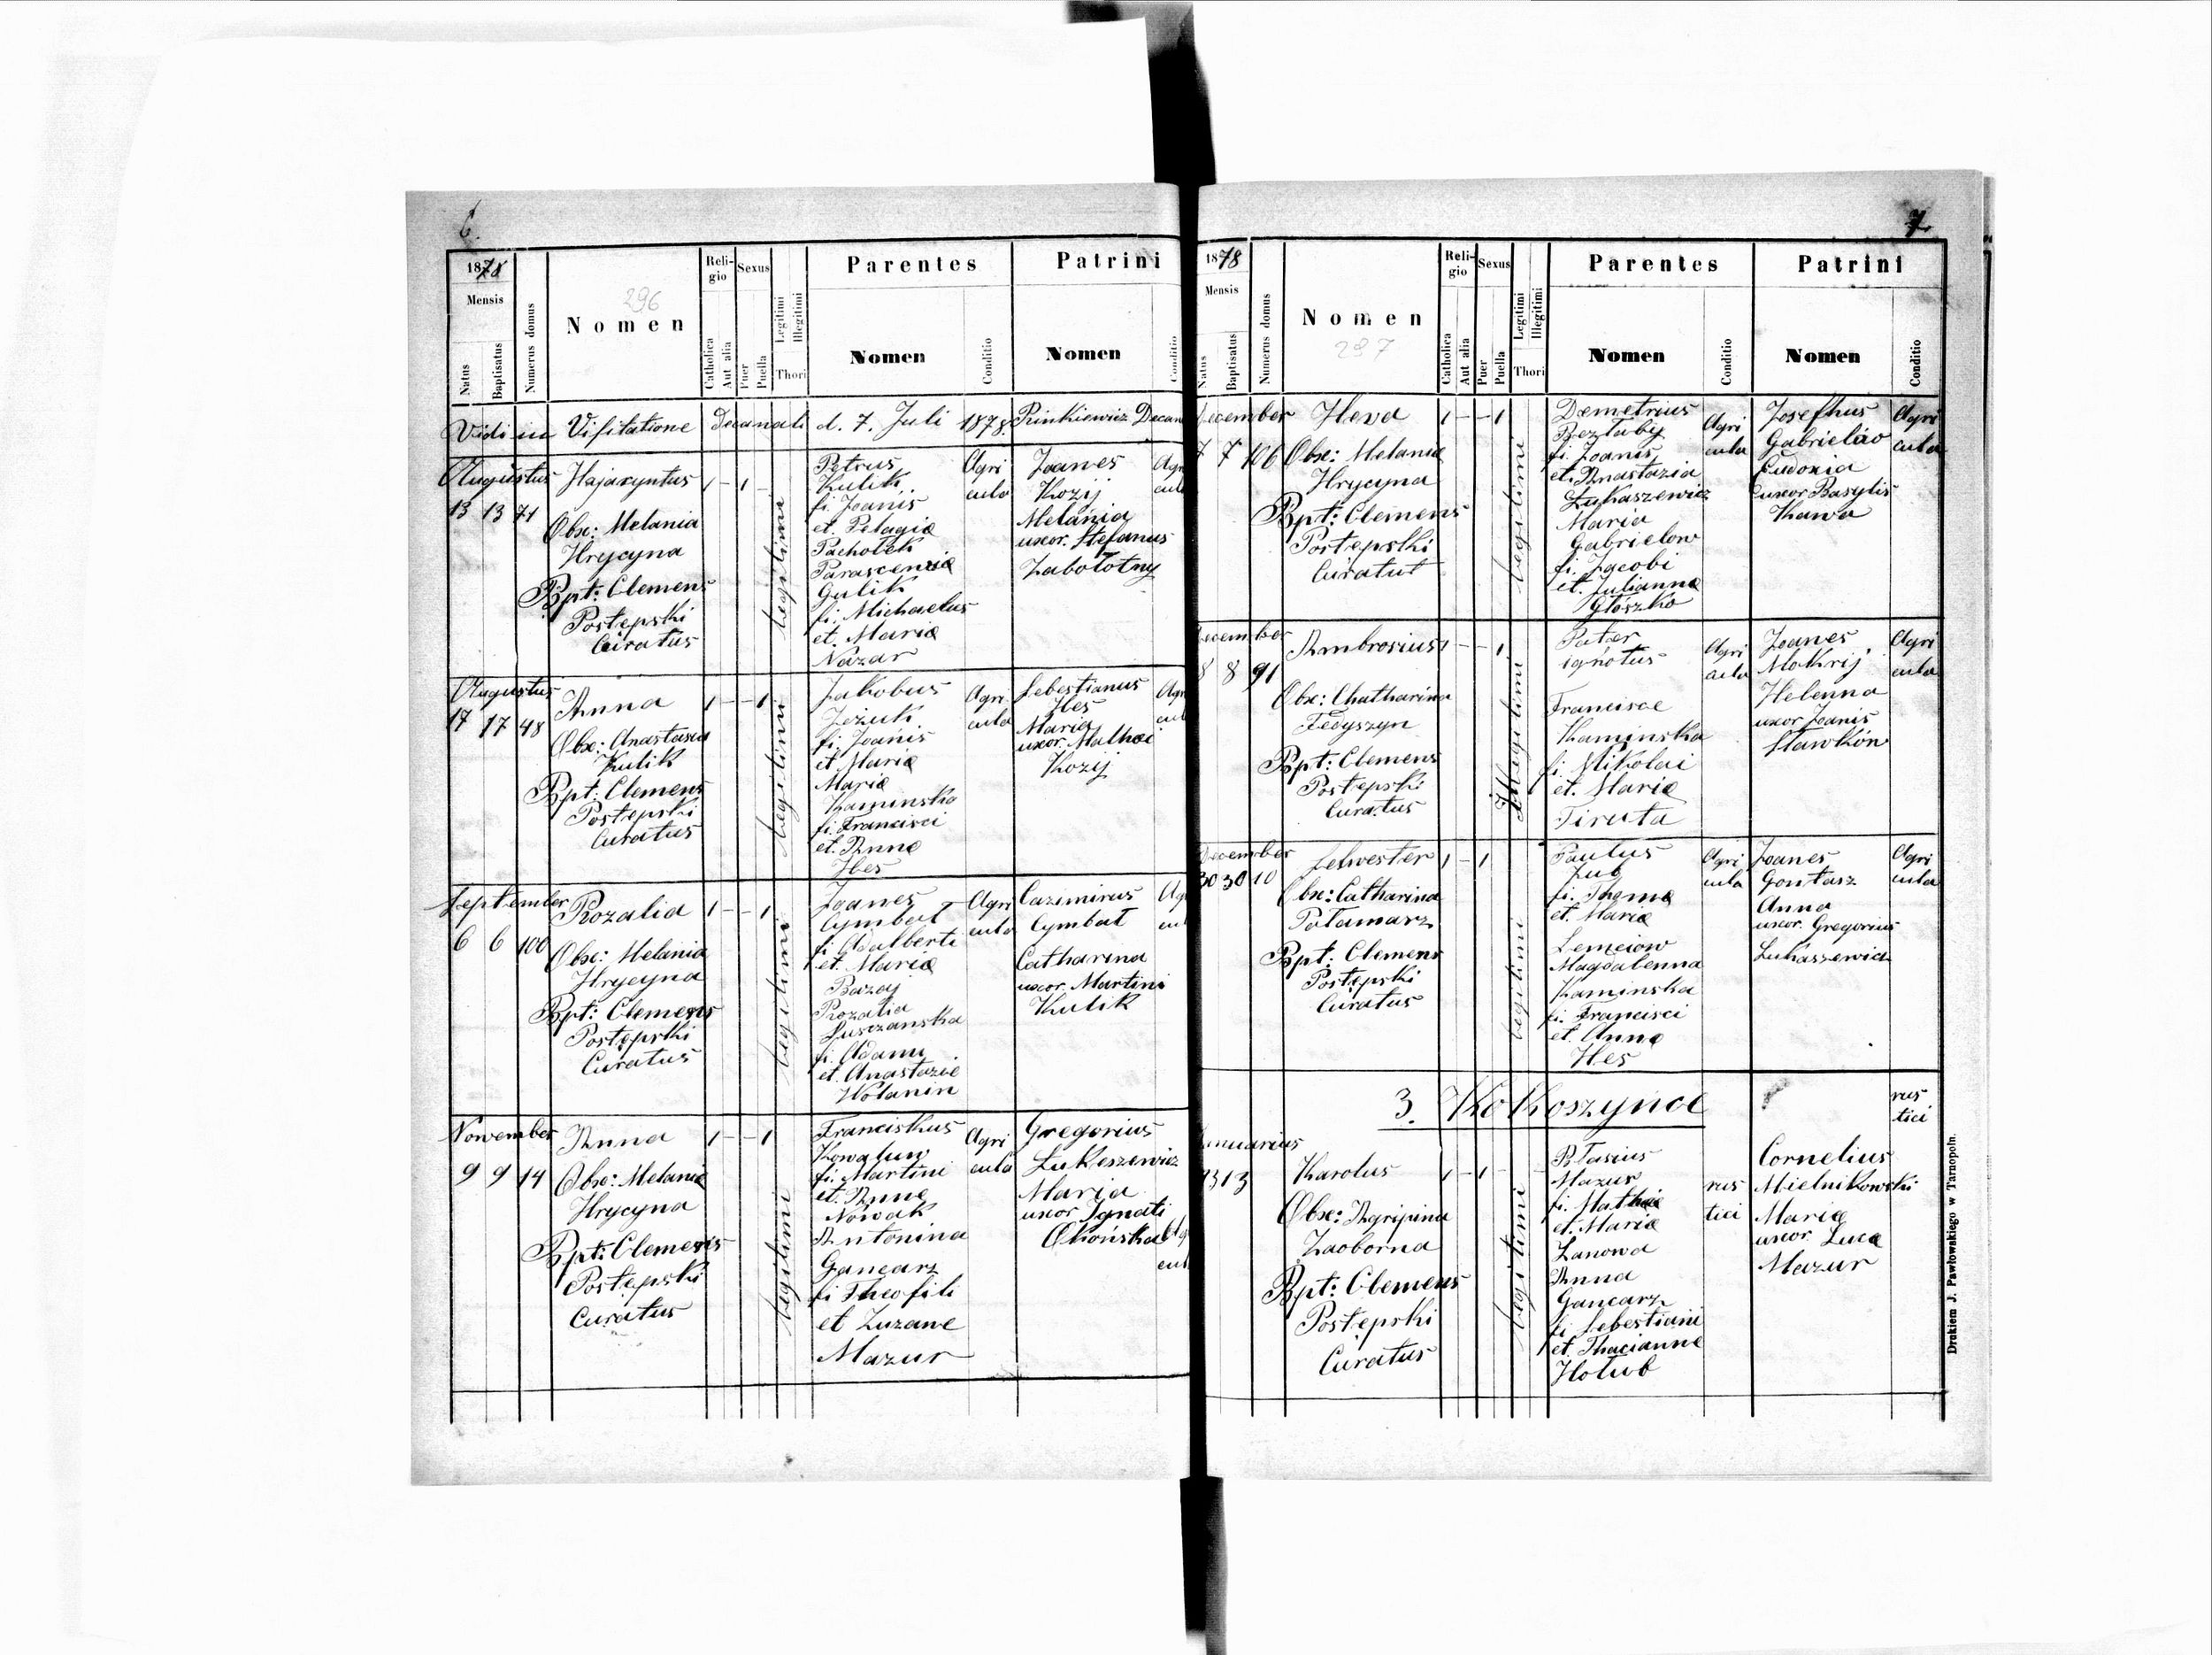 6.
1878
Mensis
Natus
Baptisatus
Numerus domus
296
Nomen
Religio
Catholica
Aut alia
Sexus
Puer
Puella
Legitimi
Illegitimi
Thori
Parentes
Nomen
Conditio
Patrini
Nomen
Conditio
Vidi in Visitatione Decanali d. 7. Juli 1878. Decan
Augustus
13 13 71
Hajacyntus
1 - 1 -
Obs: Melania
Hrycyna
Bpt: Clemens
Postępski
Curatus
legitimi
Petrus
Kulik
fi. Joanis
et Pelagiæ
Pachołek
Parascenziæ
Gulik
fi. Michaelus
et. Mariæ
Nazar
Agri
cula
Joanes
Kozij
Melania
uxor. Stefanus
Zabołotny
Agri
cula
Augustus
17 17 48
Anna
1 - - 1
Obs: Anastasia
Kulik
Bpt: Clemens
Postępski
Curatus
legitimi
Jakobus
Jeżuk
fi. Joanis
et Mariæ
Mariæ
Kaminska
fi. Francisci
et. Annæ
Hes
Agri
cula
Sebestianus
Hes
Maria
uxor. Mathei
Kozij
Agri
cul
September
6 6 100
Rozalia
1 - - 1
Obs: Melania
Hrycyna
Bpt: Clemens
Postępski
Curatus
legitimi
Joanes
Cymbał
fi. Adalberti
et. Mariæ
Bazaj
Rozalia
Suszanska
fi. Adami
et. Anastaziæ
Wołanin
Agri
cula
Cazimirus
Cymbał
Catharina
uxor. Martini
Kulik
Ag
cul
Nowember
9 9 14
Anna
1 - - 1
Obs: Melaniæ
Hrycyna
Bpt: Clemens
Postępski
Curatus
legitimi
Franciskus
Kowaluw
fi. Martini
et. Annæ
Nowak
Antonina
Gancarz
fi Theofili
et Zuzane
Mazur
Agri
cula
Gregorius
Łukeszewicz
Maria
uxor Ignati
Okońska
Ag
cul
7.
1878
Mensis
Natus
Baptisatus
Numerus domus
Nomen
297
Religio
Catholica
Aut alia
Sexus
Puer
Puella
Legitimi
Illegitimi
Thori
Parentes
Nomen
Conditio
Patrini
Nomen
Conditio
December
7 7 106
Heva
1 - - 1
Obs: Melaniæ
Hrycyna
Bpt: Clemens
Postępski
Curatus
legitimi
Demetrius
Bezłaby
fi. Joanis
et. Anastazia
Łukaszewicz
Maria
Gabrielow
fi. Jacobi
et. Juliannæ
Głoszko
Agri
cula
Josefhus
Gabrielów
Eudoxia
uxor Basylis
Kawa
Agri
cula
December
8 8 91
Ambrosius
1 - - 1
Obs: Chatharina
Fedyszyn
Bpt: Clemens
Postępski
Curatus
Illegitimi
Pater
ignotus
Franciscæ
Kaminska
fi. Mikolai
et. Mariæ
Tiruta
Agri
cula
Joanes
Mokrij
Helenna
uxor Joanis
Sławkón
Agri
cula
December
30 30 10
Selwester
1 - 1
Obs: Catharina
Pałamarz
Bpt: Clemens
Postępski
Curatus
legitimi
Paulus
Zub
fi. Thomæ
et. Mariæ
Lemciow
Magdalenna
Kaminska
fi. Francisci
et. Annæ
Hes
Agri
cula
Joanes
Gontasz
Anna
uxor. Gregorius
Łukaszewicz
Agri
cula
3. Kokoszynce
rus
tici
Januarius
13 13
Karolus
1 - 1 -
Obs: Agripina
Zaoborna
Bpt: Clemens
Postępski
Curatus
legitimi
Błasius
Mazur
fi. Mathiæ
et. Mariæ
Zanowa
Anna
Gancarz
fi. Sebestiani
et. Thacianne
Hołub
rus
tici
Cornelius
Mielnikowski
Maria
uxor. Lucæ
Mazur
Drukiem J. Pawłowskiego w Tarnopolu.